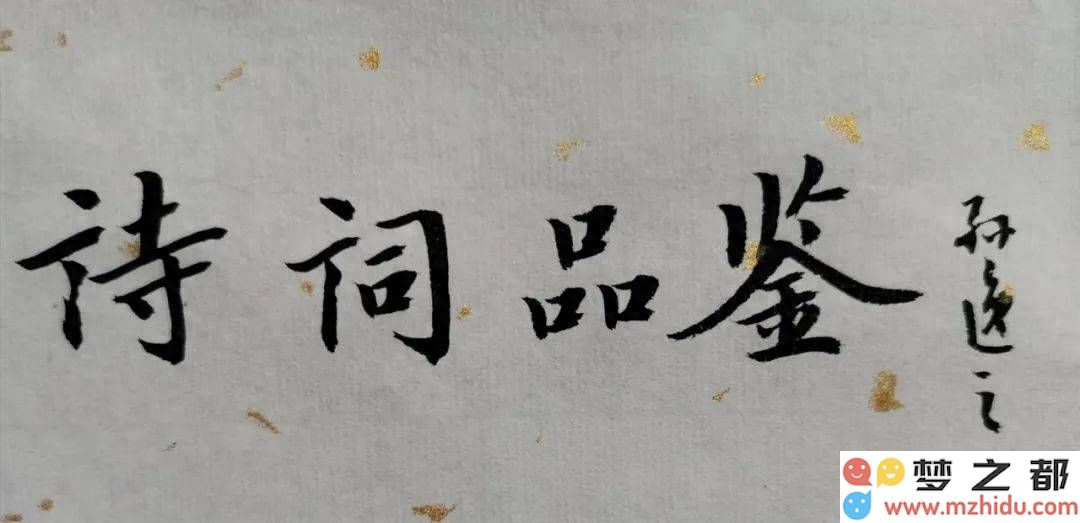 诗词品鉴
孙逸之
梦之都
www.mzhidu.com